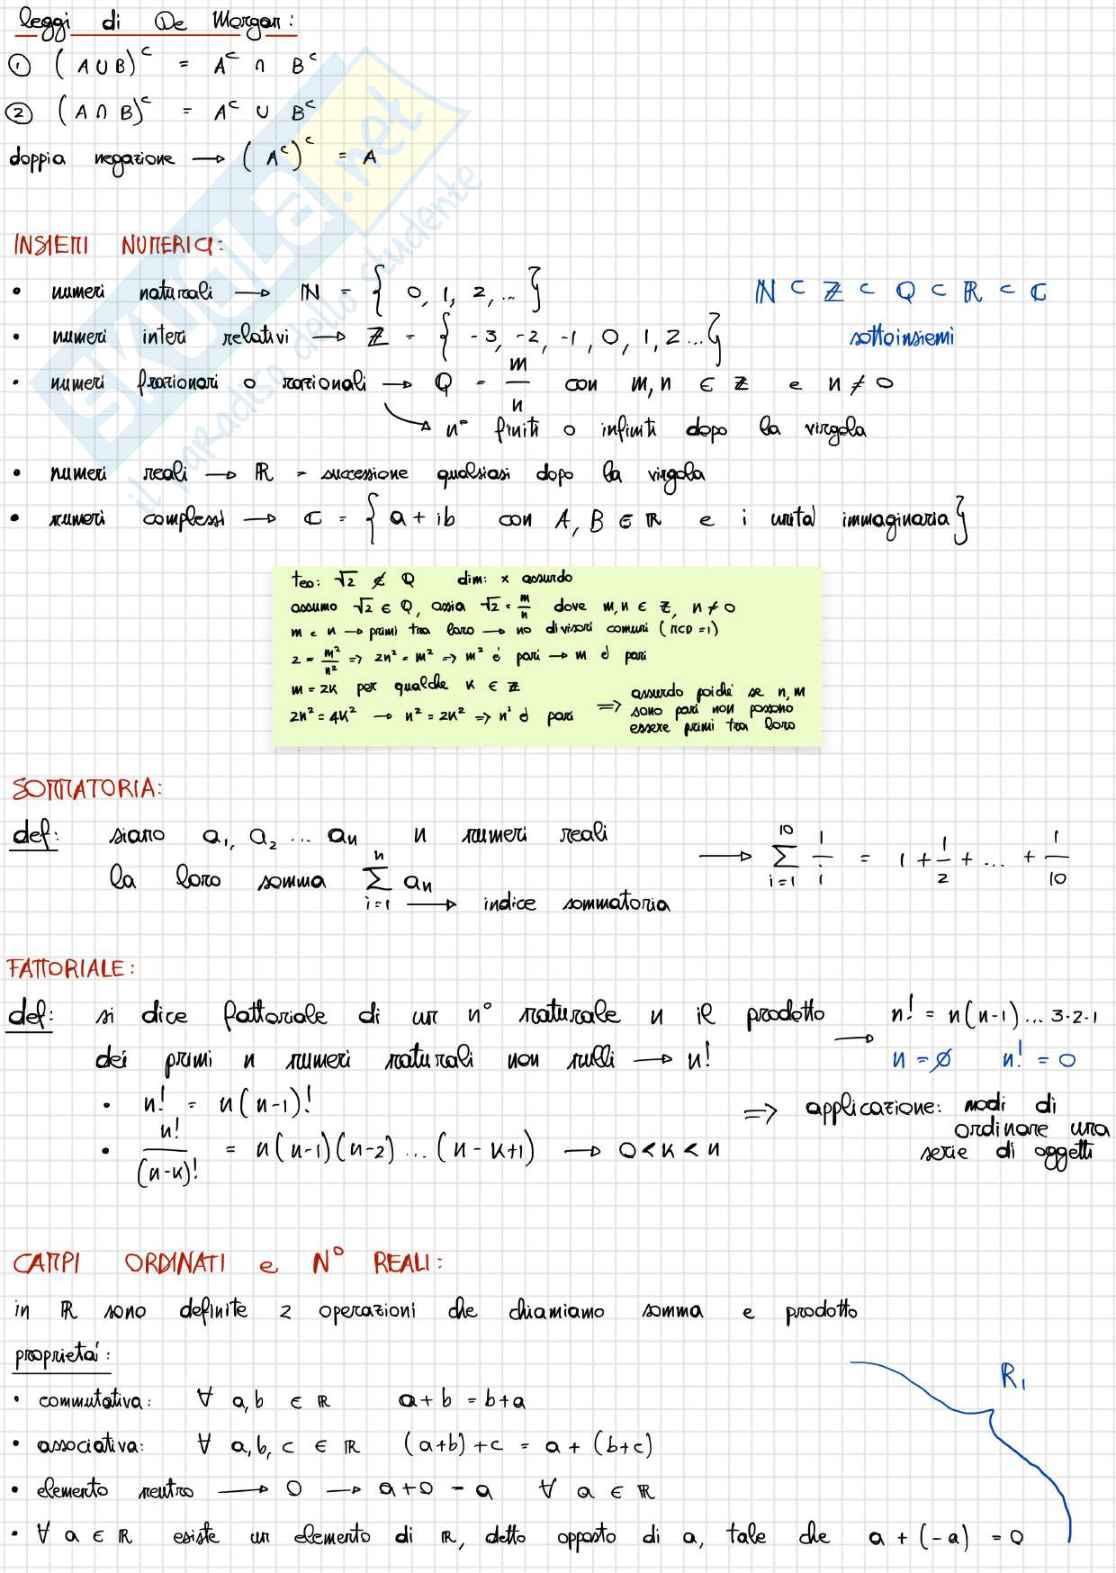 leggi di De Morgan:
① (A ∪ B)ᶜ = Aᶜ ∩ Bᶜ
② (A ∩ B)ᶜ = Aᶜ ∪ Bᶜ
doppia negazione → (Aᶜ)ᶜ = A
SKUOLA.net
il paradiso dello studente
INSIEMI NUMERICI:
• numeri naturali → ℕ = { 0, 1, 2, ... }
ℕ ⊂ ℤ ⊂ ℚ ⊂ ℝ ⊂ ℂ
• numeri interi relativi → ℤ = { -3, -2, -1, 0, 1, 2 ... }
sottoinsiemi
• numeri frazionari o razionali → ℚ = m/n con m, n ∈ ℤ e n ≠ 0
→ n° finiti o infiniti dopo la virgola
• numeri reali → ℝ = successione qualsiasi dopo la virgola
• numeri complessi → ℂ = { a + ib con A, B ∈ ℝ e i unità immaginaria }
teo: √2 ∉ ℚ dim: x assurdo
assumo √2 ∈ ℚ, ossia √2 = m/n dove m, n ∈ ℤ, n ≠ 0
m e n → primi tra loro → no divisori comuni (MCD = 1)
2 = m²/n² => 2n² = m² => m² è pari → m è pari
m = 2k per qualche k ∈ ℤ
2n² = 4k² → n² = 2k² => n² è pari
=> assurdo poiché se n, m
sono pari non possono
essere primi tra loro
SOMMATORIA:
def: siano a₁, a₂ ... aₙ n numeri reali
la loro somma ∑ⁿᵢ₌₁ aₙ
→ indice sommatoria
→ ∑¹⁰ᵢ₌₁ 1/i = 1 + 1/2 + ... + 1/10
FATTORIALE:
def: si dice fattoriale di un n° naturale n il prodotto
dei primi n numeri naturali non nulli → n!
→ n! = n(n-1) ... 3·2·1
n = ∅ n! = 0
• n! = n(n-1)!
• n!/(n-k)! = n(n-1)(n-2) ... (n-k+1) → 0 < k < n
=> applicazione: modi di
ordinare una
serie di oggetti
CAMPI ORDINATI e N° REALI:
in ℝ sono definite 2 operazioni che chiamiamo somma e prodotto
proprietà:
• commutativa: ∀ a, b ∈ ℝ a + b = b + a
R₁
• associativa: ∀ a, b, c ∈ ℝ (a+b) + c = a + (b+c)
• elemento neutro → 0 → a + 0 = a ∀ a ∈ ℝ
• ∀ a ∈ ℝ esiste un elemento di ℝ, detto opposto di a, tale che a + (-a) = 0